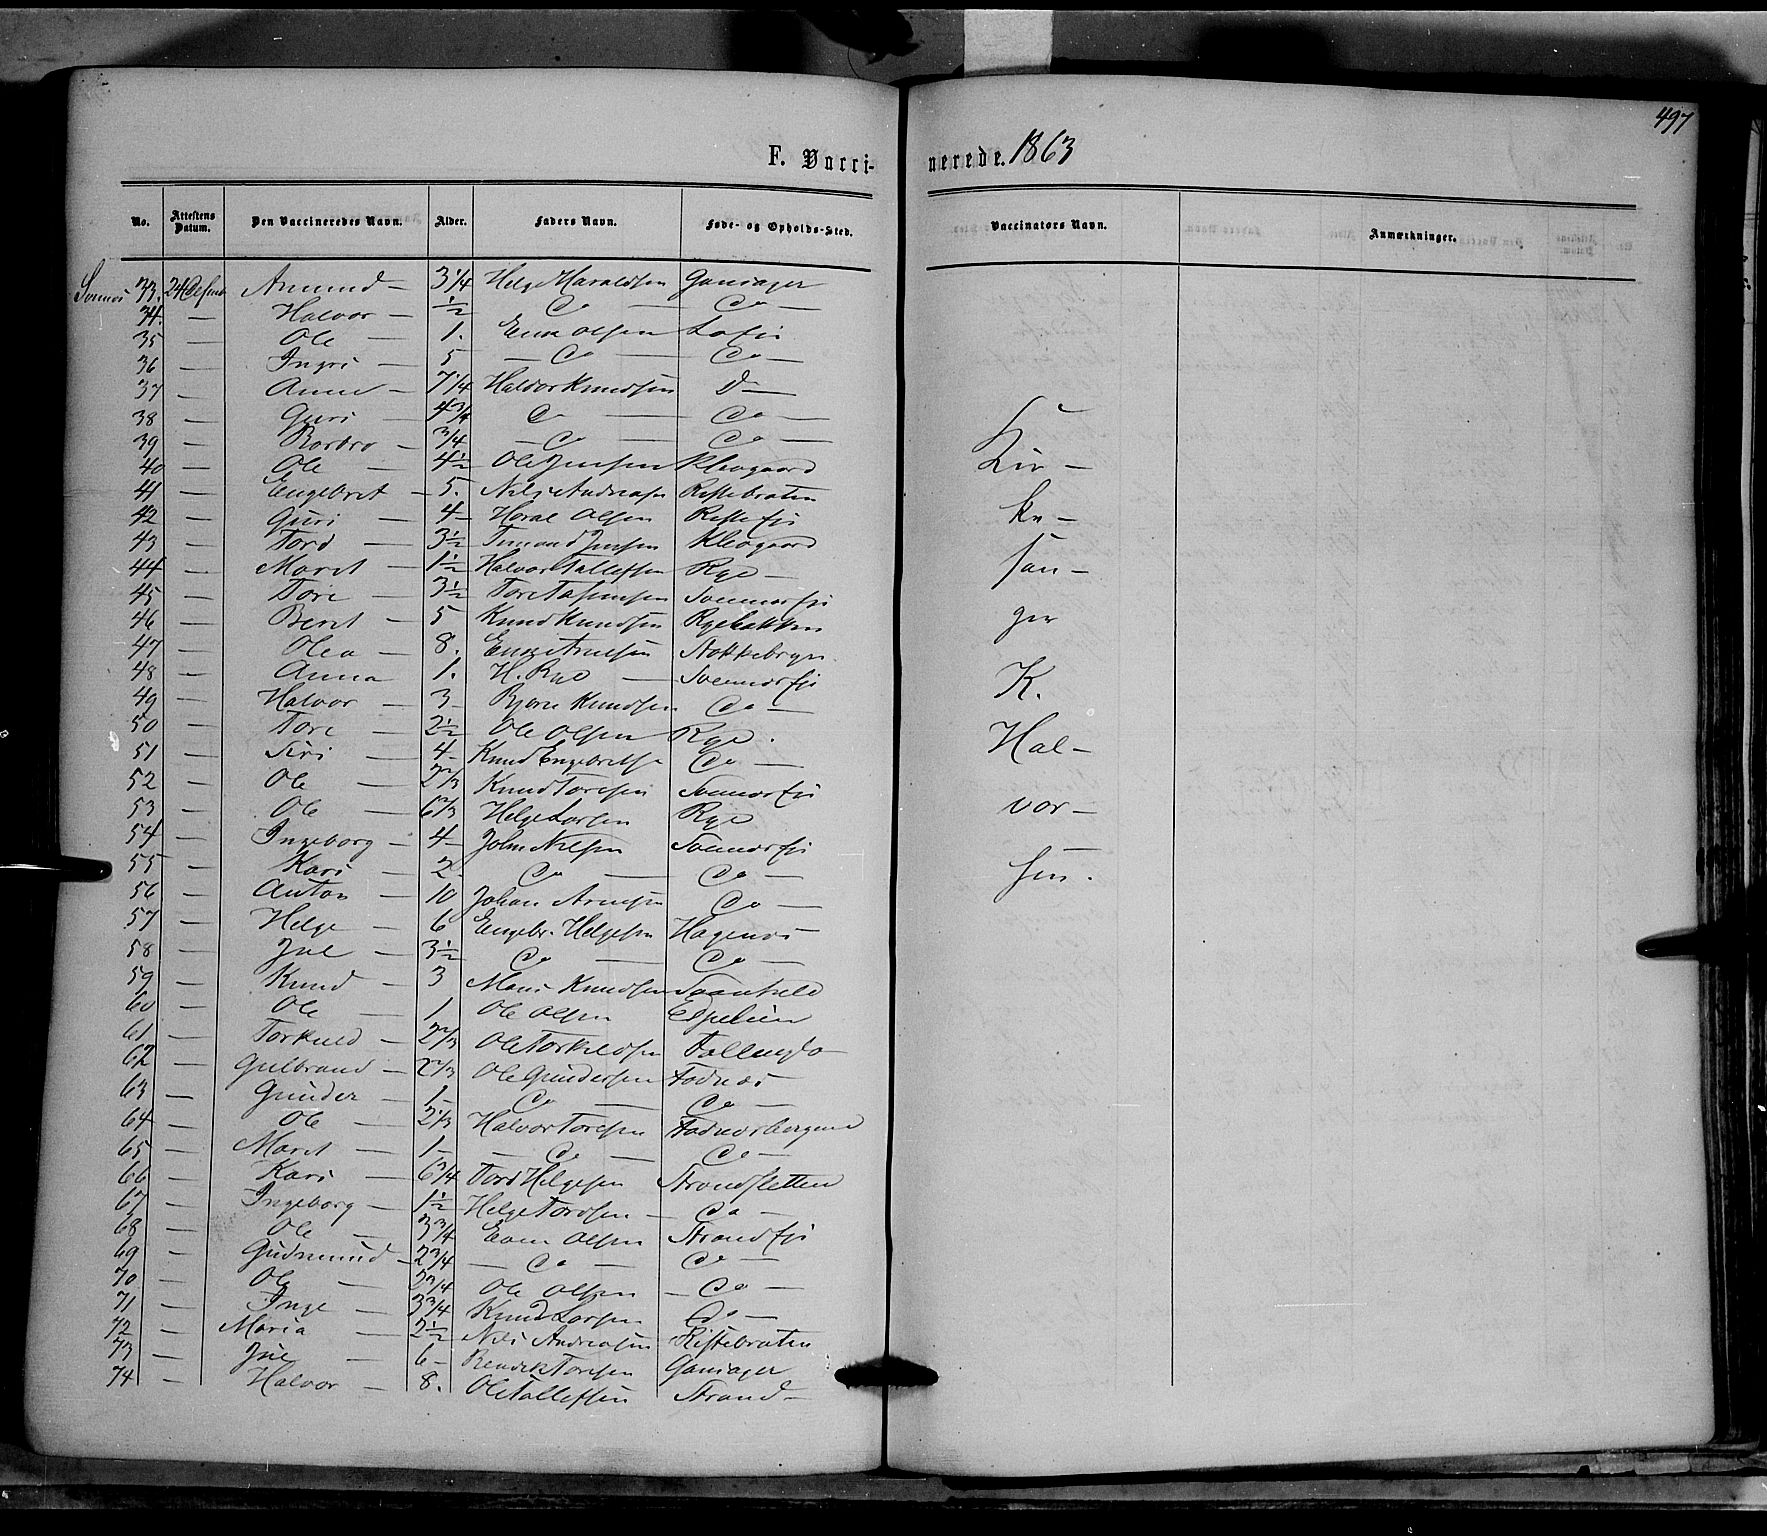 497
F. Vaccinerede. 1863
No. Attestens Datum. Den Vaccineredes Navn. Alder. Faders Navn. Føde- og Opholds-Sted. Vaccinators Navn. Anmærkninger.
33. 24 Amund — 3 1/4 Helge Haraldsen
34. — Halvor — 1/2 Do — Do —
35 — Ole — 1. Olsen
36 — Ingri — 5 — Do — Do —
37 — Anne — 7 1/4 Halvor Knudsen D —
38 — Guri — 4 3/4 Do — Do — Kir —
39 — Barbro — 3/4 — Do — Do —
40 — Ole — 4 1/2 Ole Jensen Klevgaard
41 — Engebret — 5. Nils Andreasn Ristebraten ke —
42 — Guri — 4 — Olsen
43 — Tord — 3 1/2 Jensen Klevgaard san —
44 — Marit — 1 1/2 Halvor Tollefsen Rye —
45 — Tore — 3 1/2 Tore
46 — Berit — 5 Knud Knudsen Ryebakken ger
47 — Olea — 8.
48 — Anna 1. H. Rye — K.
49 — Halvor — 3 — Bjørn Knudsen Do —
50 — Tore — 2 1/2 Ole Olsen Rye. Hal —
51 — Siri — 4 — Knud Engebretsn Do —
52 — Ole — 2 2/3 Knud Toresen
53 — Ole — 6 2/3 Helge Larsen Rye vor —
54 — Ingeborg — 4 — John Nilsen
55 — Kari — 2 Do — Do — sen.
56 — Anton — 10 Johan Arnesen Do —
57 — Helge — 6 Engebr. Helgesen Hagenæs
58 — Jul — 3 1/2 Do — Do —
59 — Knud — 3 Knudsen
60 — Ole — 1 Ole Olsen Espelien
61 — Torkild — 2 2/3 Ole Torkildsen
62 — Gulbrand — 2 2/3 Ole Gundersen Fodnæs
63 — Gunder — 1 — Do — Do —
64 — Ole — 2 1/3 Halvor Toresen
65 — Marit — 1 — — Do — Do —
66 — Kari — 6 3/4 Tord Helgesen Strandsletten
67 — Ingeborg — 1 1/2 Helge Tordsen — Do —
68 — Ole — 3 3/4 Even Olsen
69 — Gudmund — 2 3/4 — Do — Do —
70 — Ole — 2 3/4 Ole Olsen — Do —
71 — Inge — 3 3/4 Knud Larsen Do —
72 — Maria — 2 1/2 Nils Andreasen Ristebraten
73 — Jul — 6 — Bendik Toresen
74 — Halvor — 8. Ole Tollefsen Strand —